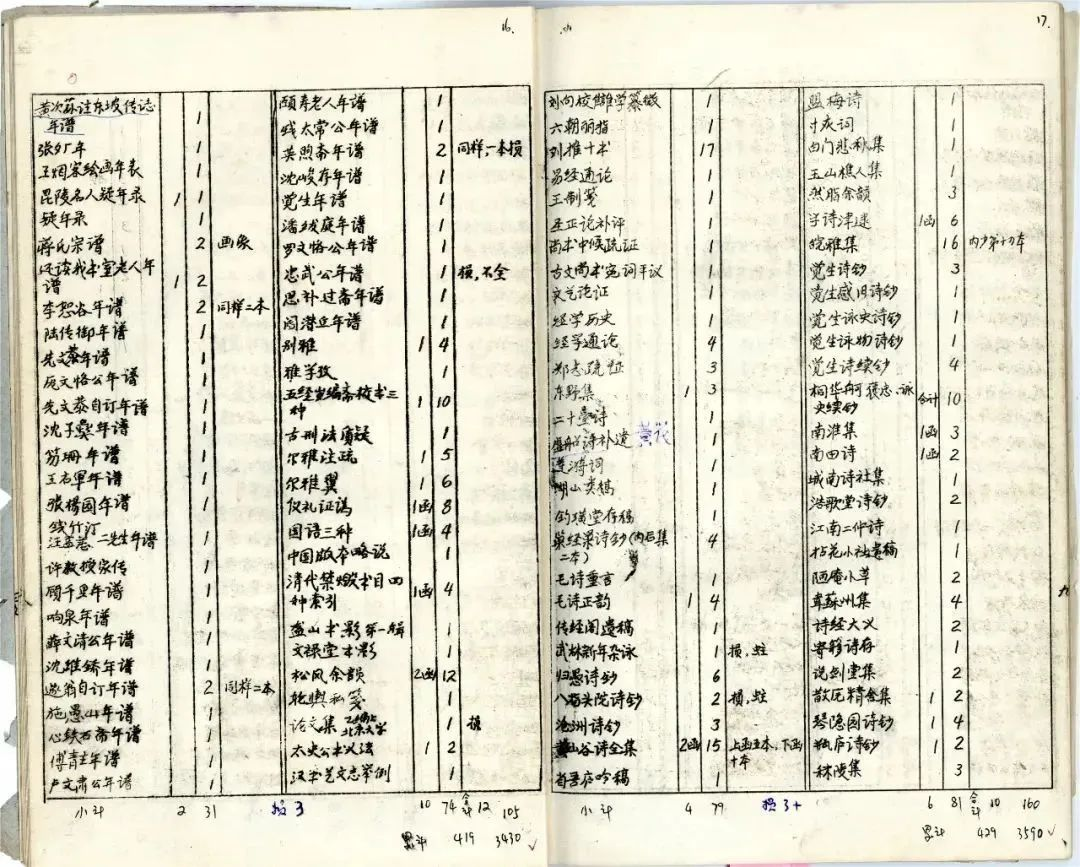 16.
年谱
1
张夕厂年
1
王烟客绘画年表
1
毘陵名人疑年录 1 1
疑年录 1
蒋氏宗谱 2 画象
还读我书室老人年
谱 1 2
李恕谷年谱 2 同样二本
陆侍御年谱 1
年谱 1
厐文恪公年谱 1
先文恭自订年谱 1
年谱 1
年谱 1
王右军年谱 1
张杨园年谱 1
钱竹汀
二先生年谱 1
许教授家传 1
顾千里年谱 1
响泉年谱 1
薛文清公年谱 1
年谱 1
遂翁自订年谱 2 同样二本
施愚山年谱 1
心铁石斋年谱 1
傅青主年谱 1
卢文肃公年谱 1
小计 2 31 损3
颐寿老人年谱 1
太常公年谱 1
英煦斋年谱 2 同样,一本损
年谱 1
觉生年谱 1
潘绂庭年谱 1
罗文恪公年谱 1
忠武公年谱 1 损,不全
思补过斋年谱 1
阎潜丘年谱 1
别雅 1 4
雅学考 1
五经岁编斋校书三
种 1 10
古刑法质疑 1
尔雅注疏 1 5
尔雅翼 1 6
仪礼证讹 1函 8
国语三种 1函 4
中国版本略说 1
清代禁燬书目四
种索引 1函 4
盋山书影第一辑 1
文禄堂书影 1
松风余韵 2函 12
乾舆私笺 1
论文集 北京大学 1 损
太史公书义法 1 2
汉书艺文志举例 1
10 74 合计 12 105
累计 419 3430
17.
刘向校雠学纂微 1
六朝丽指 1
刘推十书 17
易经通论 1
王制笺 1
圣证论补评 1
尚书中候疏证 1
古文尚书冤词平议 1
六艺论证 1
经学历史 1
经学通论 4
郑志疏证 3
东野集 1 3
二十壹诗 1
诗补遗 黄花 1
莲漪词 1
明山类稿 1
存稿
揅经室诗钞(内后集
二本) 4
毛诗重言 1
毛诗正韵 1 4
传经阁遗稿 1
武林新年杂咏 1 损,蛀
归愚诗钞 6
八旬头陀诗钞 2 损,蛀
沧洲诗钞 3
黄山谷诗全集 2函 15 上函五本、下函
十本
吟稿 1
小计 4 79 损3+
盟梅诗 1
寸灰词 1
西门悲秋集 1
玉山樵人集 1
然脂余韵 3
学诗津逮 1函 6
皖雅集 16 内少第十力本
觉生诗钞 3
觉生感旧诗钞 1
觉生咏史诗钞 1
觉生咏物诗钞 1
觉生诗续钞 4
史续钞 合计 10
南淮集 1函 3
南田诗 1函 2
城南诗社集 1
浩歌堂诗钞 2
江南二仲诗 1
拈花小社遗稿 1
陋庵小草 2
韦苏州集 4
诗经大义 2
寄簃诗存 1
说剑堂集 2
散原精舍集 1 2
琴隐园诗钞 1 4
瓶庐诗钞 1 2
林陵集 3
6 81 合计 10 160
累计 429 3590